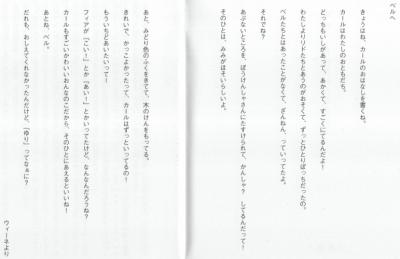 ベルへ
きょうはね、カールのおはなしを書くね。
カールはわたしのおともだち。
どっちもいしがあって、あかくて、すごくにてるんだよ！
わたしよりリドたちとあうのがおそくて、ずっとひとりぼっちだったの。
ベルたちとはあったことがなくて、ざんねん、っていってたよ。
それでね？
あぶないところを、ぼうけんしゃさんにたすけられて、かんしゃ？　してるんだって！
そのひとは、みみがほそいらしいよ。
あと、みどり色のふくをきてて、木のけんをもってる。
きれいで、かっこよかったって、カールはずっといってるの！
もういちどあいたいって！
フィアが「こい！」とか「あい！」とかいってたけど、なんなんだろうね？
カールもすごいかわいいおんなのこだから、そのひとにあえるといいね！
あとね、ベル。
だれも、おしえてくれなかったんだけど、「ゆり」ってなぁに？
ウィーネより